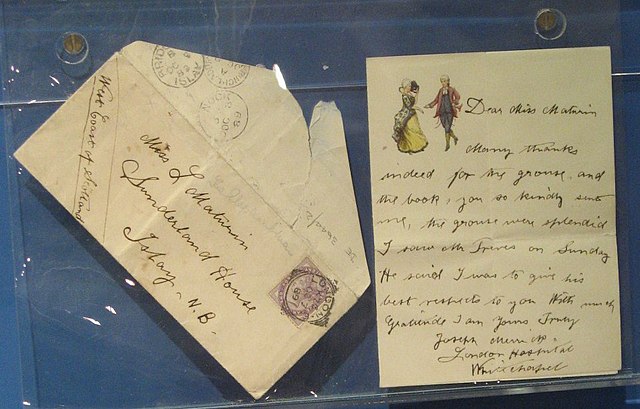 West Coast of Scotland
Miss L Maturin
Sunderland House
Islay - N.B.
LONDON
89
Dear Miss Maturin
Many thanks
indeed for the grouse, and
the book, you so kindly sent
me, the grouse were splendid
I saw Mr Treves on Sunday
He said I was to give his
best respects to you With much
Gratitude I am Yours Truly
Joseph Merrick.
London Hospital
Whitechapel